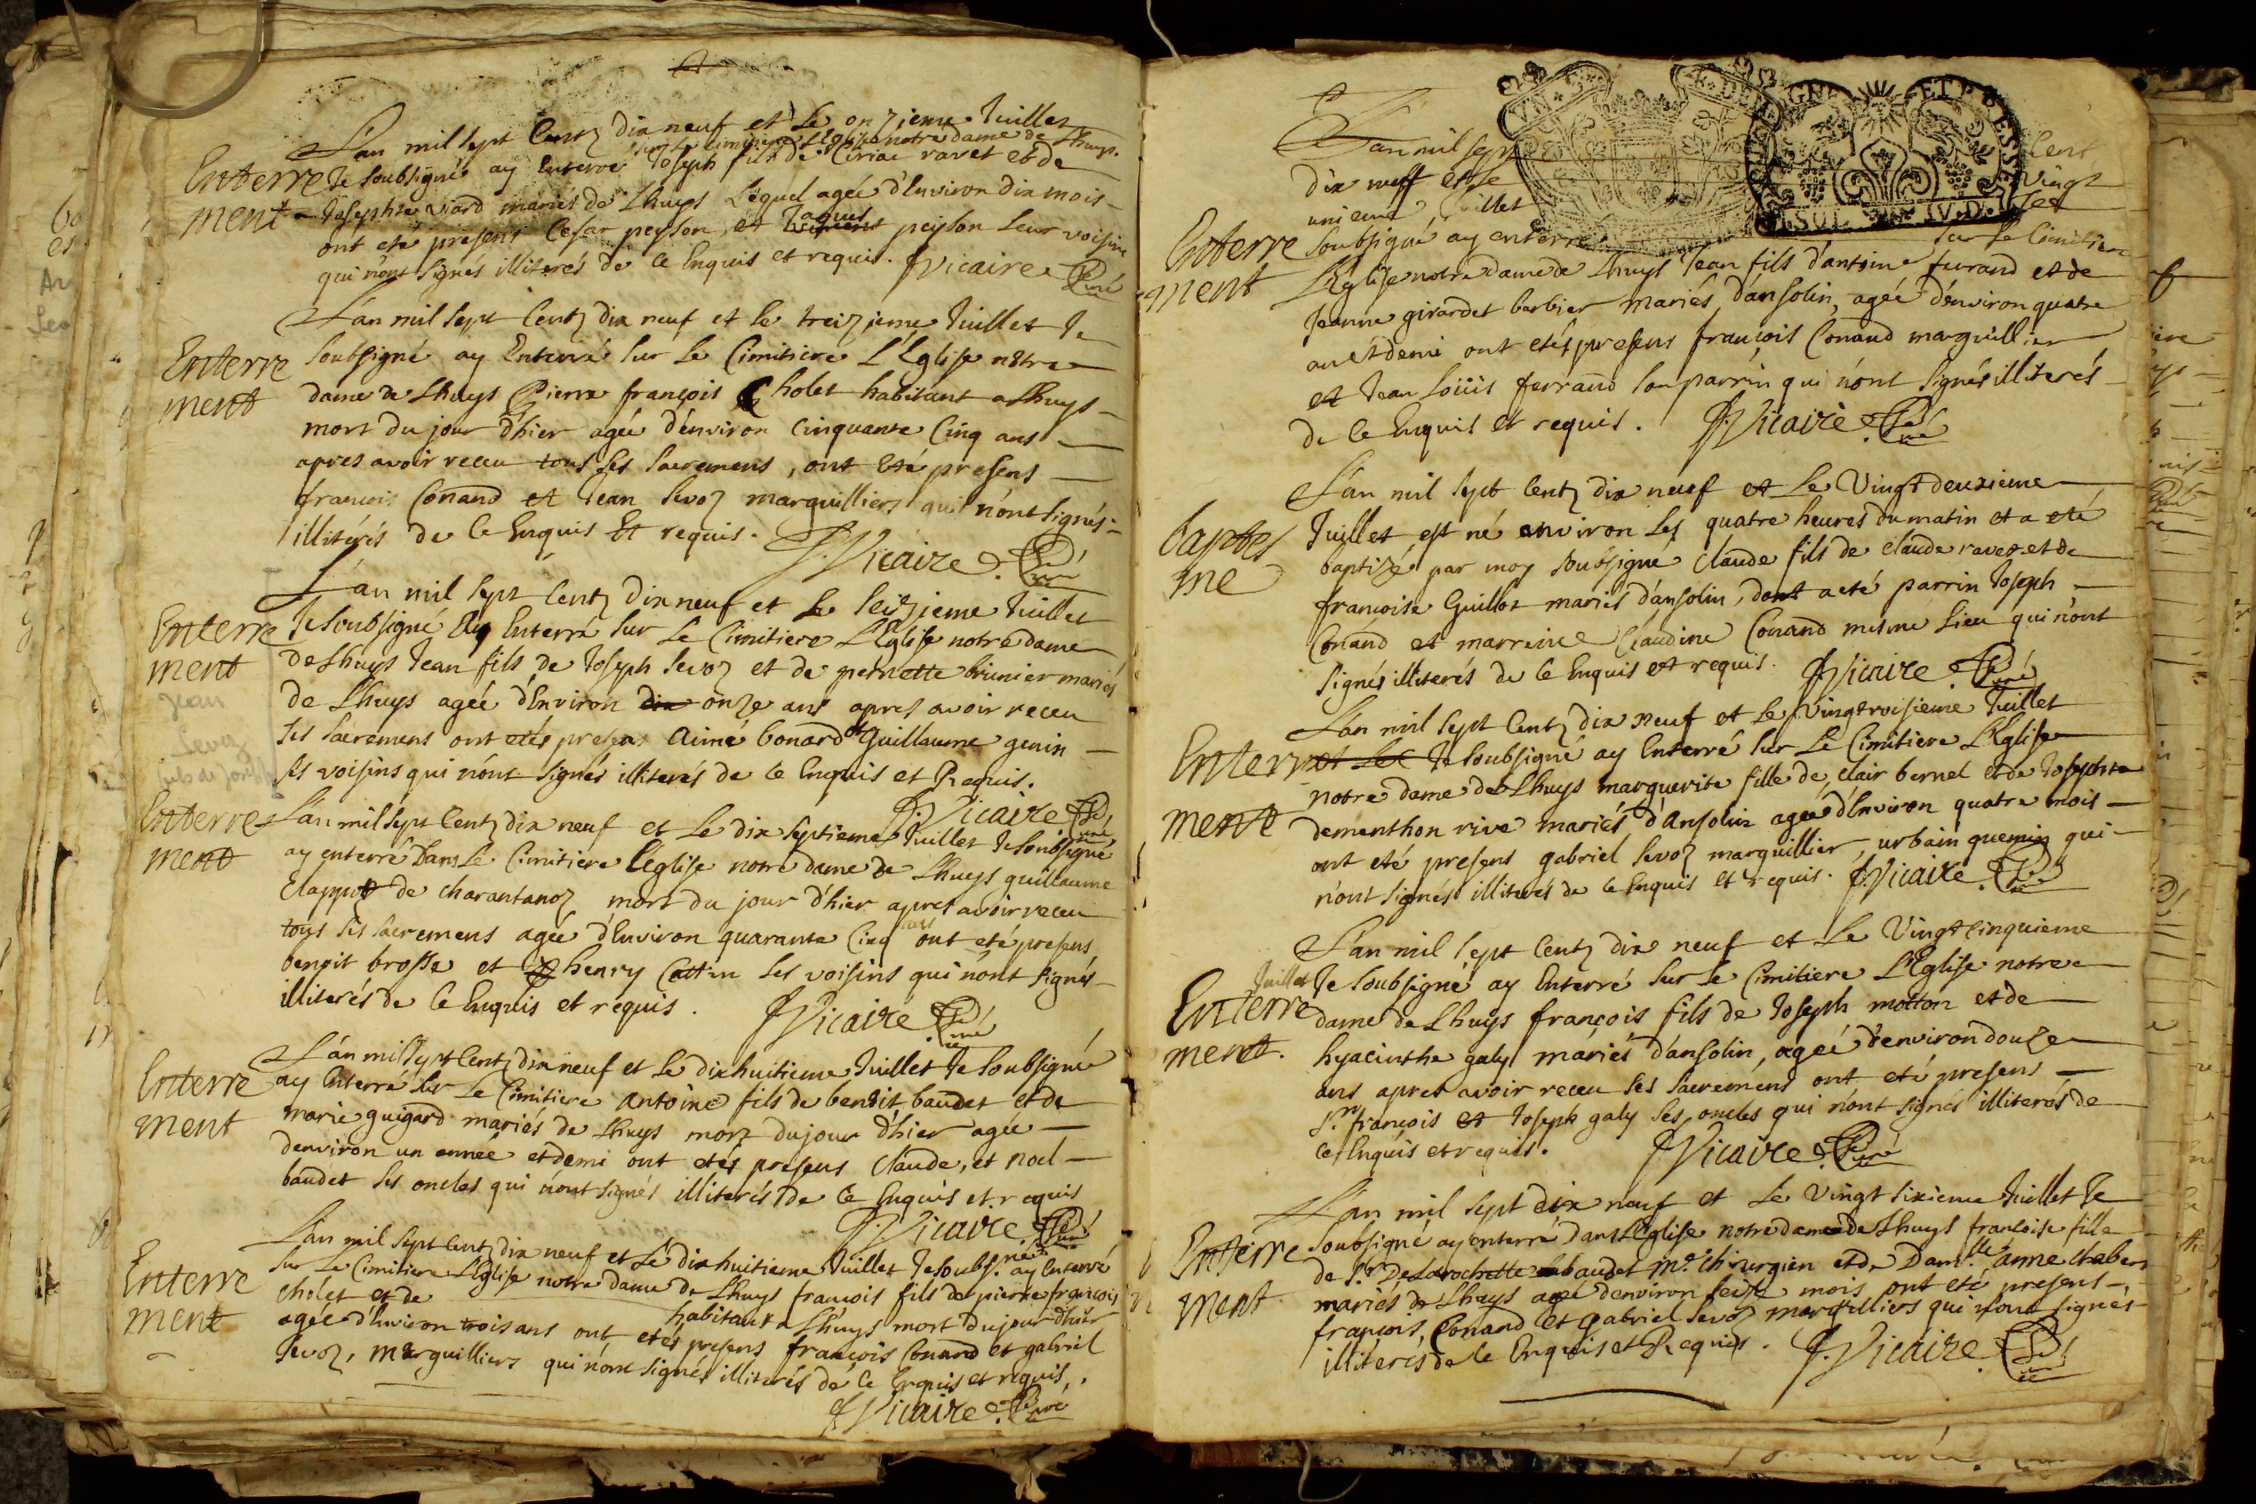 L'an mil sept Centz dix neuf et Le onzieme Juillet
sur Le Cimitiere L'Eglise notre dame de Lhuys.
Enterre Je soubsigné ay Enterré Joseph fils de Ciriac ravet et de
ment Josephte viard mariés de Lhuys Lequel ageé d'Environ dix mois
ont eté presens Cesar peyson, et Jaques peyson Leur voisins
qui n'ont signés illiterés de Ce Enquis et requis. J Vicaire Curé
L'an mil sept Centz dix neuf et Le treizieme Juillet Je
Enterre soubsigné ay Enterré sur Le Cimitiere L'Eglise notre
ment dame de Lhuys Pierre françois Cholet habitant a Lhuys
mort du jour d'hier ageé d'environ Cinquante Cinq ans
apres avoir receu tous ses sacremens, ont eté presens
françois Conand et Jean Sevoz marguilliers qui n'ont signés
illitérés de Ce Enquis Et requis. J. Vicaire. Curé
L'an mil sept Centz dix neuf et Le seizieme Juillet
Enterre Je soubsigné Ay Enterré sur Le Cimitiere L'Eglise notre dame
ment de Lhuys Jean fils de Joseph Sevoz et de pernette brunier mariés
Jean
de Lhuys ageé d'Environ dix onze ans apres avoir receu
Sevoz
ses sacremens ont etés presens Aimé bonard et Guillaume genin
fils de Joseph
ses voisins qui n'ont signés illiterés de Ce Enquis et Requis.
J. Vicaire Curé
Enterre L'an mil sept Centz dix neuf et Le dix septieme Juillet Je soubsigné
ment ay enterré Dans Le Cimitiere L'Eglise notre dame de Lhuys guillaume
Clapput de charantanoz mort du jour d'hier apres avoir receu
tous ses sacremens ageé d'Environ quarante Cinq ans ont eté presens
benoit brosse et henry Cottin ses voisins qui n'ont signés
illiterés de Ce Enquis et requis. J Vicaire. Curé
L'an mil sept Centz dix neuf et Le dix huitieme Juillet Je soubsigné
Enterre ay Enterré sur Le Cimitiere antoine fils de benoit baudet et de
ment marie guigard mariés de Lhuys mort du jour d'hier agée
d'environ un année et demi ont etés presens Claude, et noel
baudet ses oncles qui n'ont signés illiterés de Ce Enquis et requis
J. Vicaire. Curé
L'an mil sept Centz dix neuf et Le dix huitieme Juillet Je soubs.né ay Enterré
Enterre sur Le Cimitiere L'Eglise notre dame de Lhuys francois fils de pierre francois
ment cholet et de habitant a Lhuys mort du jour d'hier
ageé d'Environ trois ans ont etés presens françois Conand et gabriel
Sevoz, marguilliers qui n'ont signés illiterés de Ce Enquis et requis.
J Vicaire. Curé
L'an mil sept Cent
dix neuff et Le Vingt
unieme Juillet Je
Enterre soubsigné ay enterré sur Le Cimitiere
ment L'Eglise notre dame de Lhuys Jean fils d'antoine ferrand et de
Jeanne girardet barbier mariés d'ansolin, ageé d'environ quatre
an et demi ont etés presens françois Conand marguillier
et Jean Loüis ferrand son parrin qui n'ont signés illiterés
de Ce Enquis et requis. J. Vicaire. Curé
L'an mil sept Centz dix neuf et Le Vingt deuxieme
baptes Juillet est né environ Les quatre heures du matin et a eté
me baptizé par moy soubsigné Claude fils de claude ravet et de
francoise Guillot mariés d'ansolin, dont a eté parrin Joseph
Conand et marreine Claudine Conand mesme Lieu qui n'ont
signés illiterés de Ce Enquis et requis. J Vicaire. Curé
L'an mil sept Centz dix neuf et Le Vingtroisieme Juillet
Enterre Je soubsigné ay Enterré sur Le Cimitiere L'Eglise
notre dame de Lhuys marguerite fille de clair bernel et de Josephte
ment dementhon rive mariés d'Ansolin ageé d'Environ quatre mois
ont eté presens gabriel Sevoz marguillier, urbain quemin qui
n'ont signés illiterés de Ce Enquis et requis. J. Vicaire. Curé
L'an mil sept Centz dix neuf et Le Vingt Cinquieme
Juillet Je soubsigné ay Enterré sur Le Cimitiere L'Eglise notre
Enterre dame de Lhuys françois fils de Joseph motton et de
ment. hyacinthe galy mariés d'ansolin, ageé d'environ douze
ans apres avoir receu ses sacremens ont eté presens
Sr. françois et Joseph galy ses oncles qui n'ont signés illiterés de
Ce Enquis et requis. J Vicaire. Curé
L'an mil sept dix neuf et Le Vingt sixieme Juillet Je
Enterre soubsigné ay enterré Dans L'Eglise notre dame de Lhuys francoise fille
de Sr. De Larochette baudet Me. chirurgien et de Dam.lle anne chabert
ment mariés de Lhuys ageé d'environ seize mois ont eté presens
françois, Conand et gabriel Sevoz marguilliers qui n'ont signés
illiterés de Ce Enquis et Requis. J. Vicaire. Curé